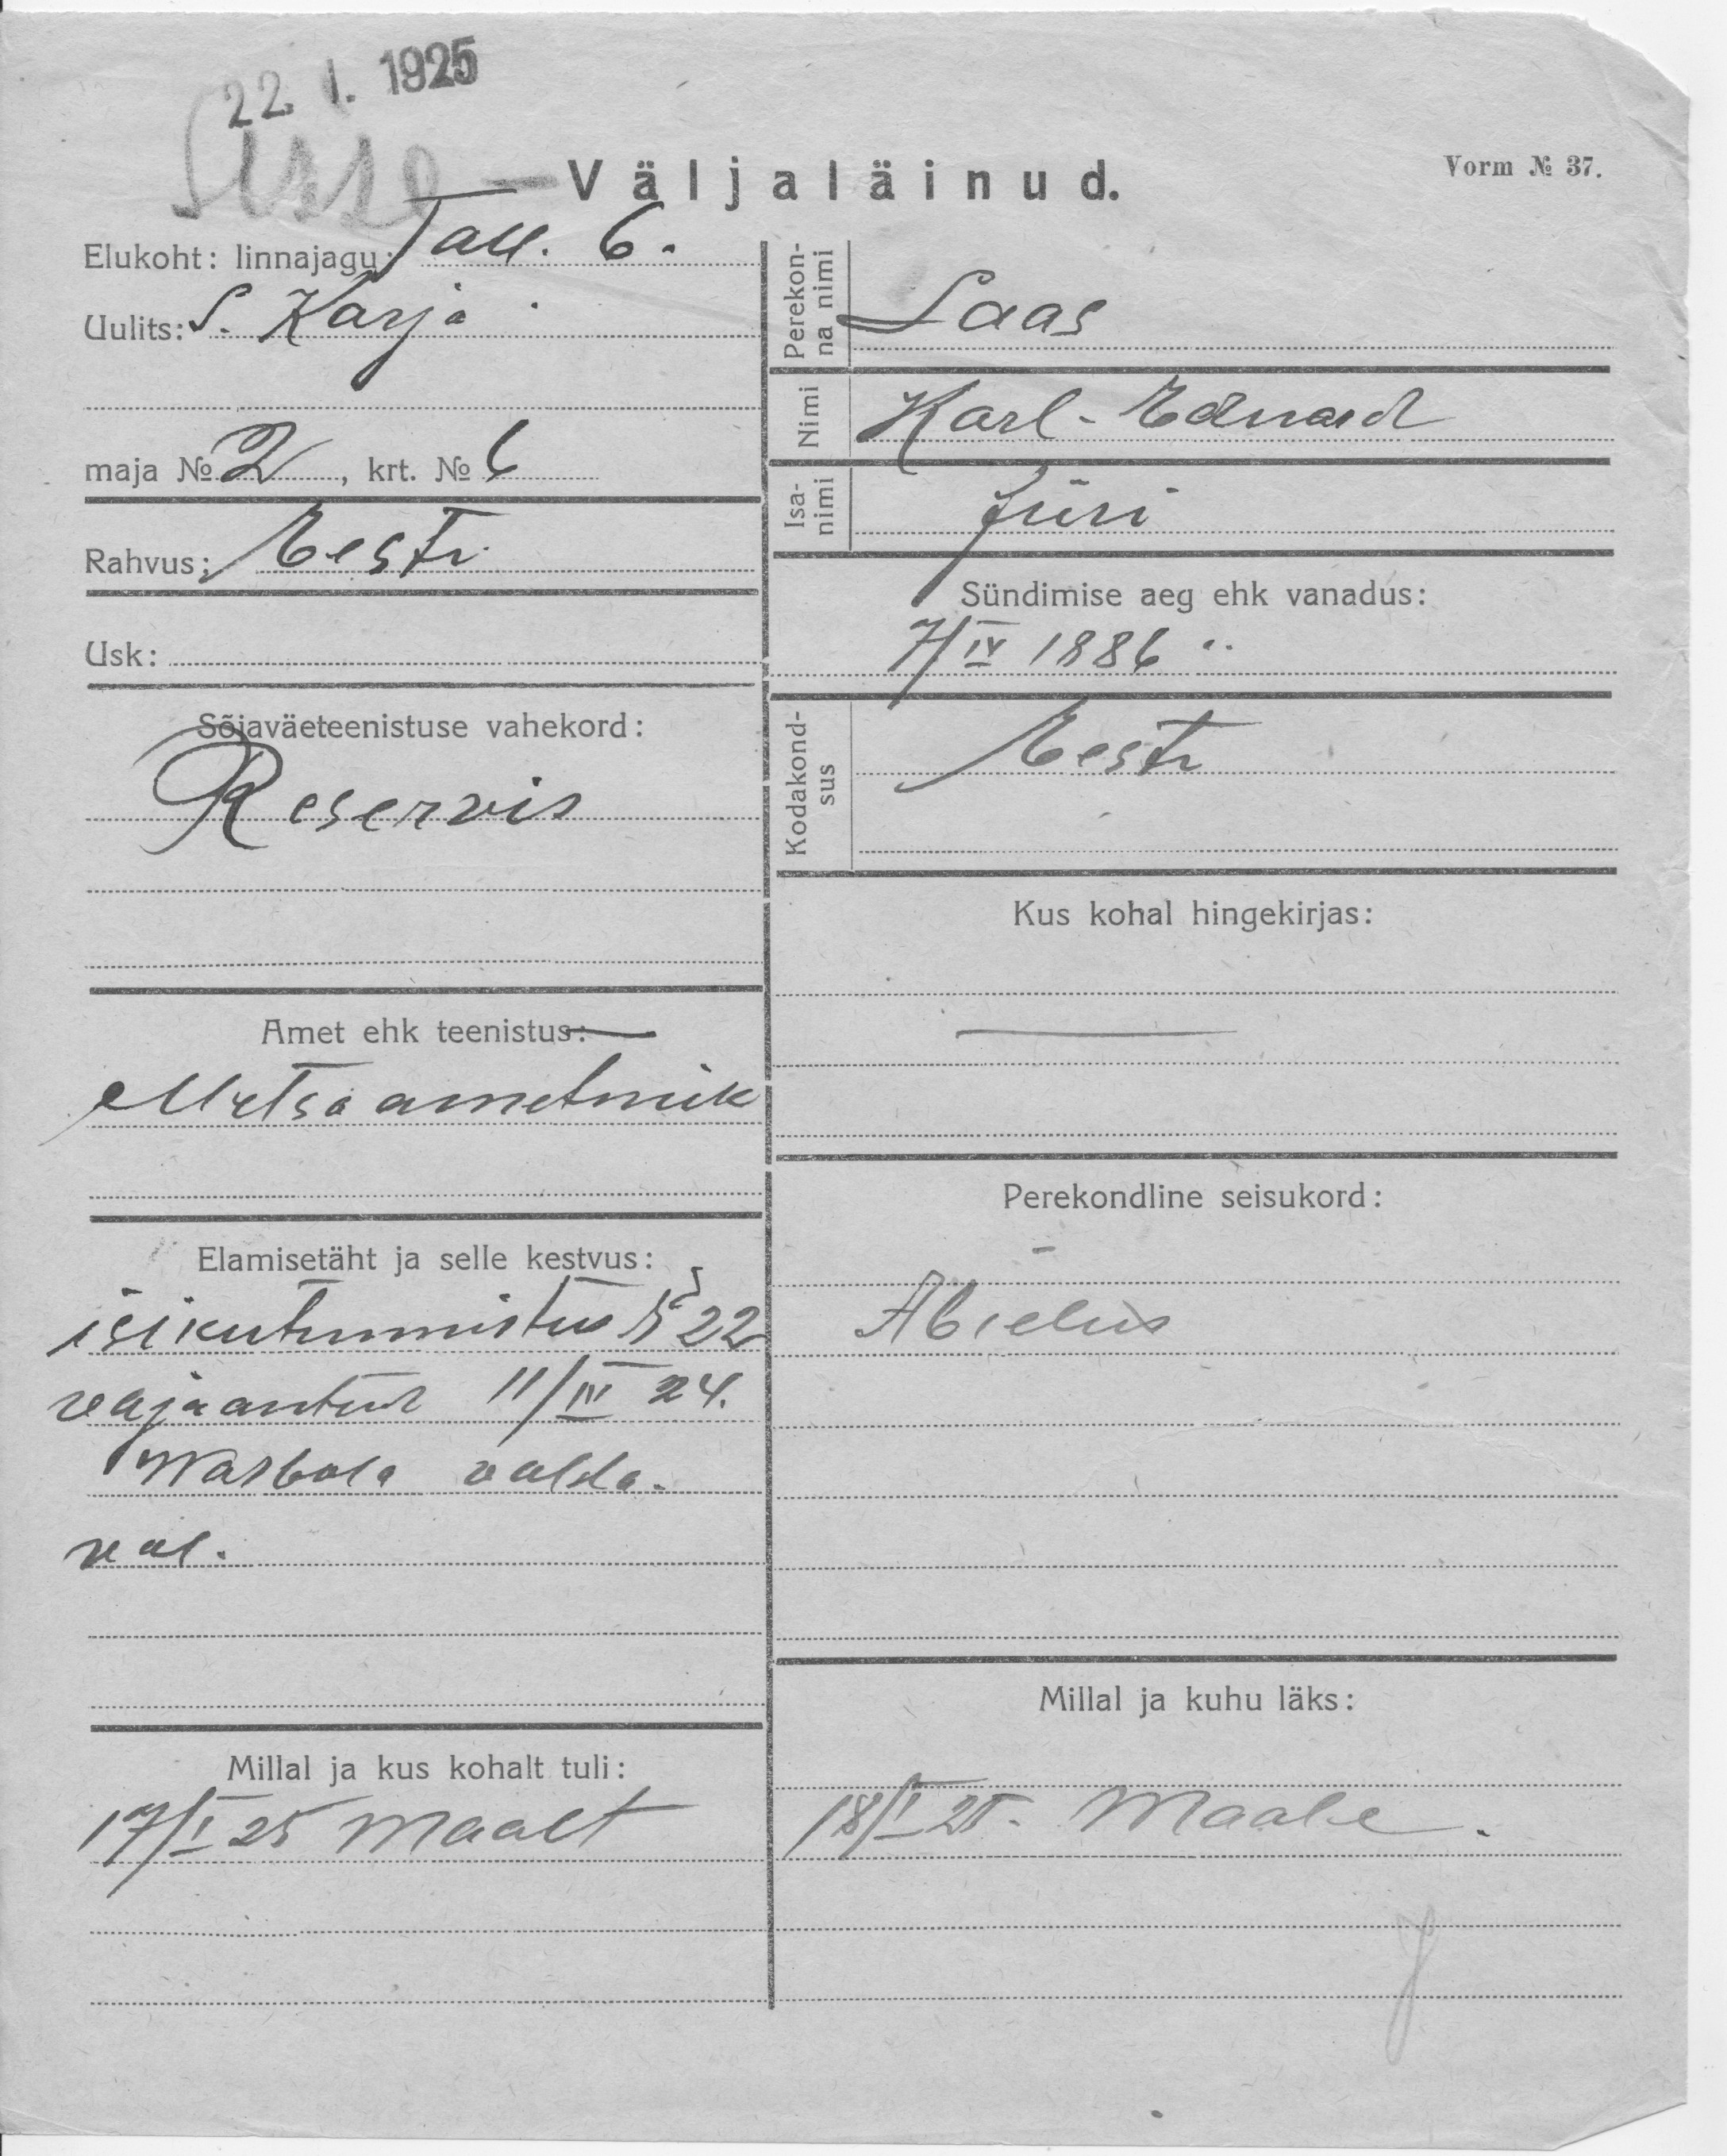 22. I. 1925
Sisse – Väljaläinud.
Vorm № 37.
Elukoht: linnajagu: Tall. 6.
Uulits: S. Karja
maja № 2, krt. № 6
Rahvus: Eesti
Usk:
Sõjaväeteenistuse vahekord:
Reservis
Amet ehk teenistus: —
Metsaametnik
Elamisetäht ja selle kestvus:
isikutunnistus № 22
väljaantud 11/III 24.
Warbola valla-
val.
Millal ja kus kohalt tuli:
17/I 25 Maalt
Perekonna nimi
Laas
Nimi
Karl-Eduard
Isanimi
Jüri
Sündimise aeg ehk vanadus:
7/IV 1886
Kodakondsus
Eesti
Kus kohal hingekirjas:
—
Perekondline seisukord:
Abielus
Millal ja kuhu läks:
18/I 25. Maale.